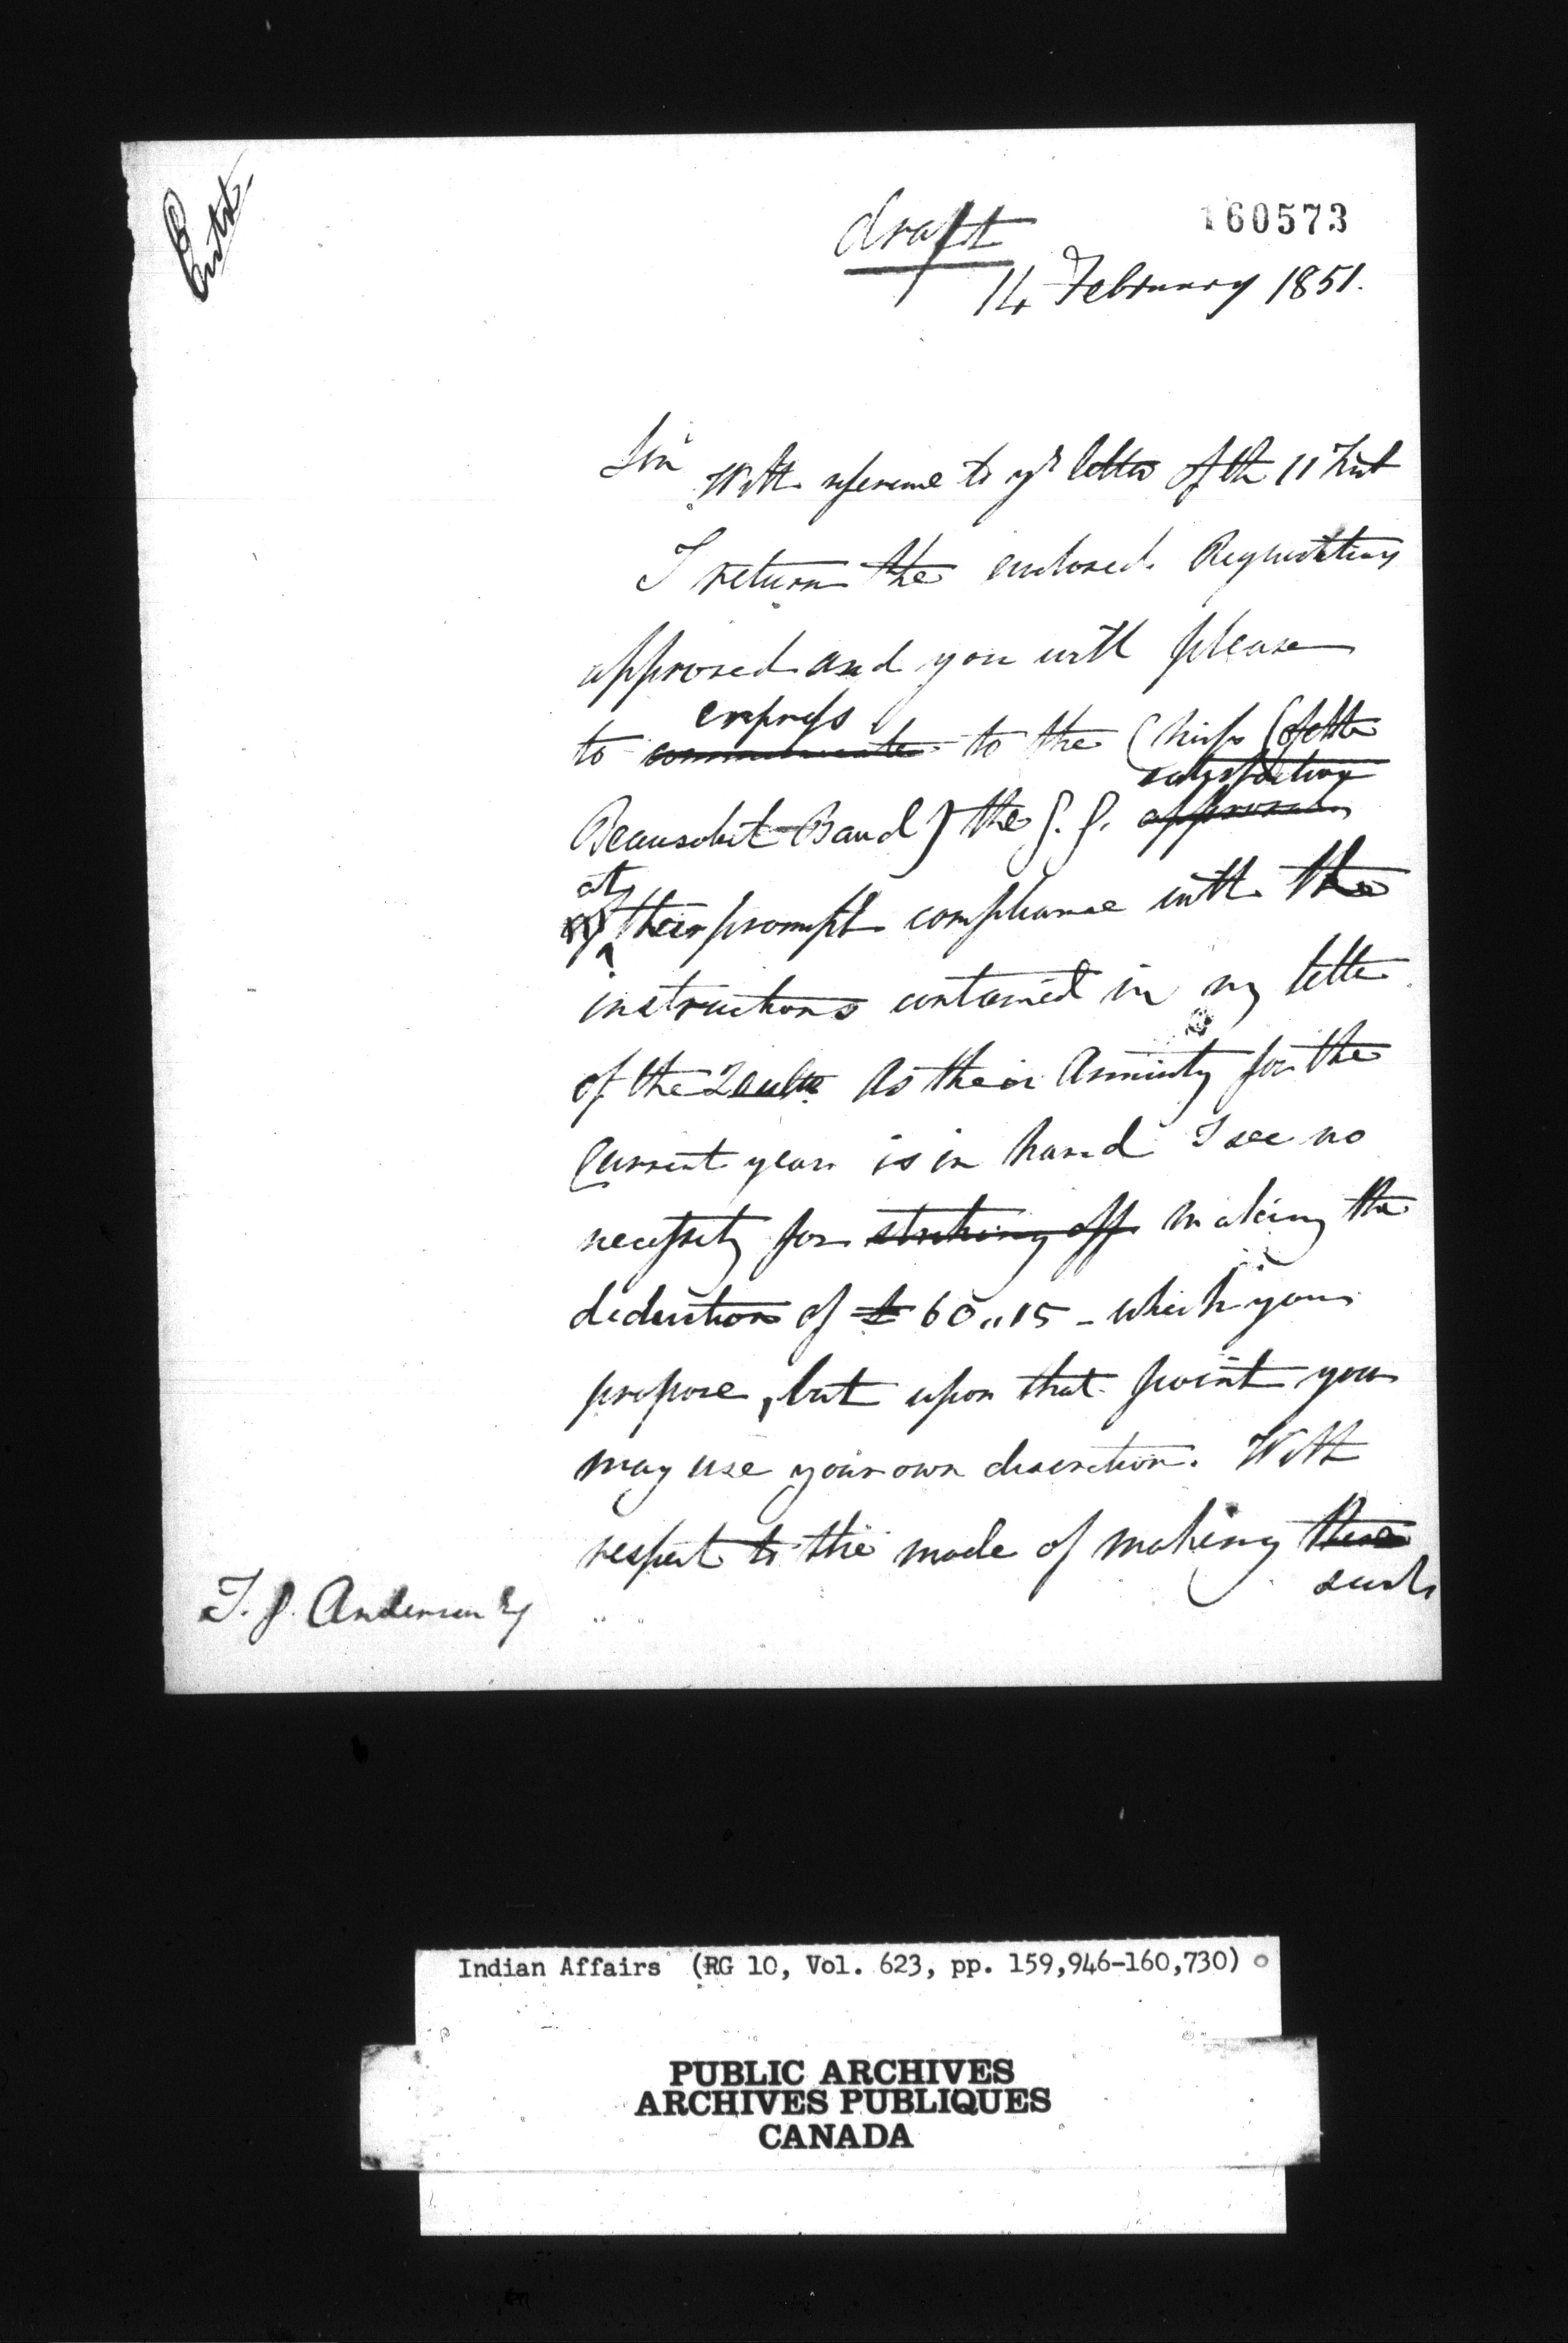 Entd.
draft
160573
14 February 1851.
Sir
With reference to yr letter of the 11 Inst
I return the enclosed Requisitions
approved and you will please
express
to communicate to the Chiefs (of the
satisfaction
Beausoleil Band) the G. G. approval
at
of their prompt compliance with the
instructions contained in my letter
of the 2 ulto. As their Annuity for the
Current year is in hand I see no
necessity for striking off making the
deduction of £60,,15 - which you
propose, but upon that point you
may use your own discretion. With
respect to the mode of making these
such
T. G. Anderson Esq
Indian Affairs (RG 10, Vol. 623, pp. 159,946-160,730)
PUBLIC ARCHIVES
ARCHIVES PUBLIQUES
CANADA